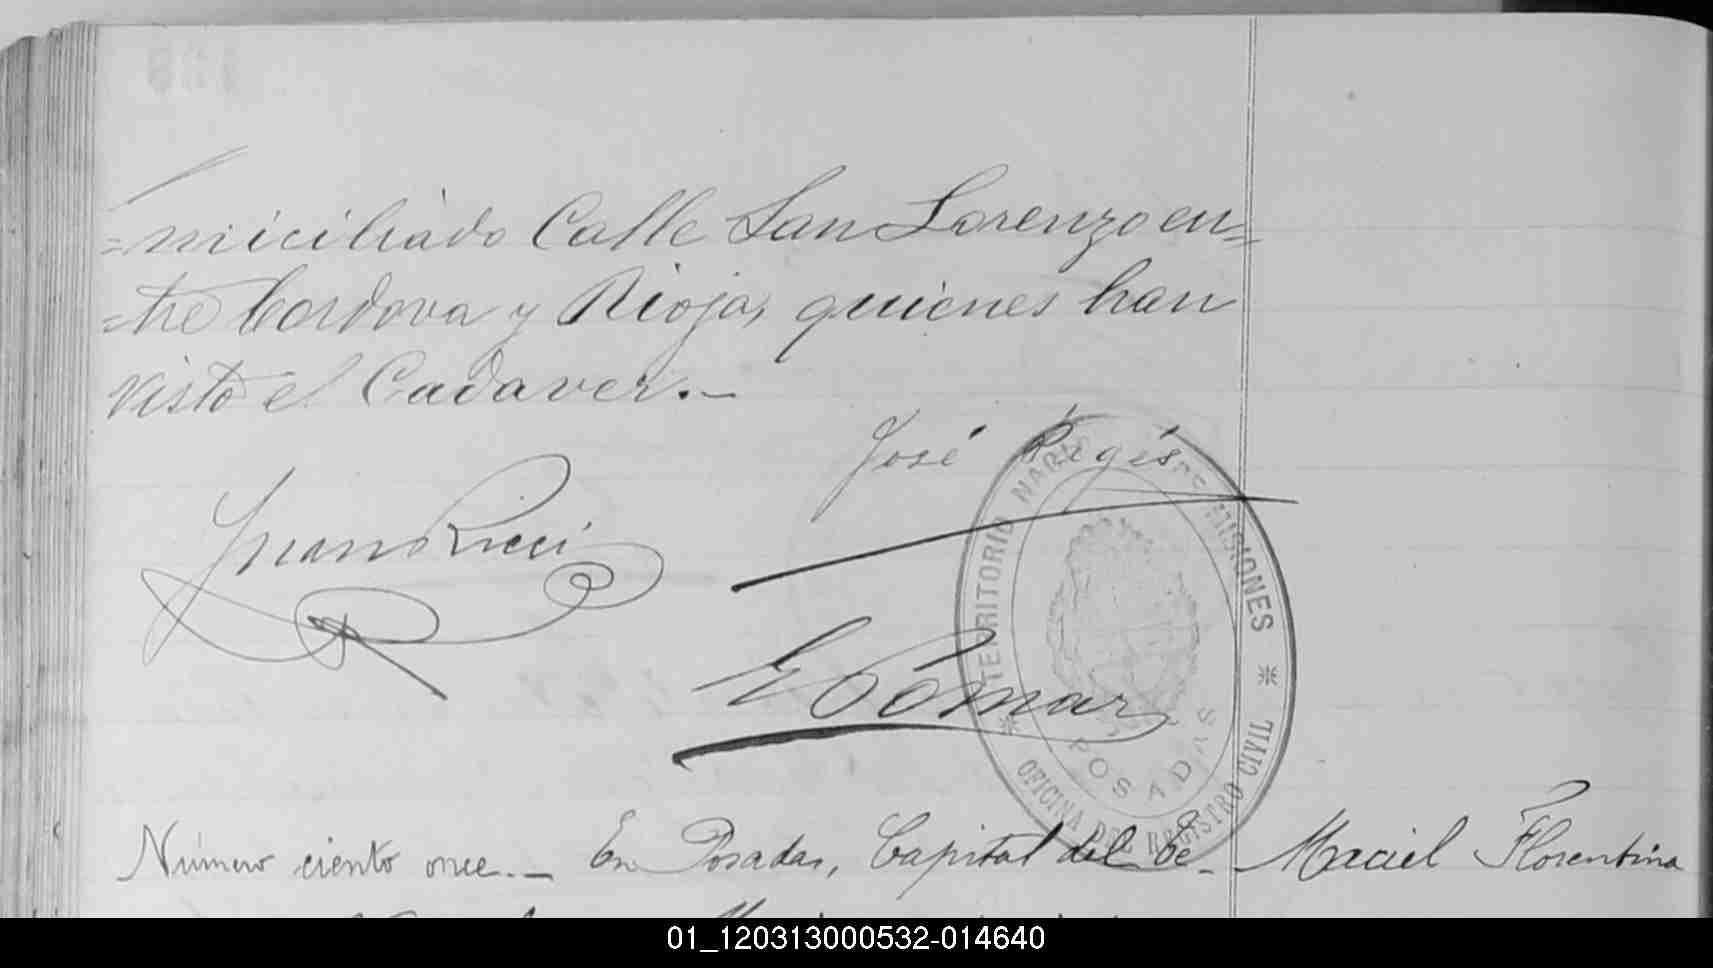 =miciliado Calle San Lorenzo en=
=tre Cordova y Rioja, quienes han
visto el Cadaver.—
José Regés
Juan Ricci
E Pomar
TERRITORIO NAC DE MISIONES
OFICINA DEL REGISTRO CIVIL
POSADAS
Número ciento once.— En Posadas, Capital del Te- Maciel Florentina
01_120313000532-014640